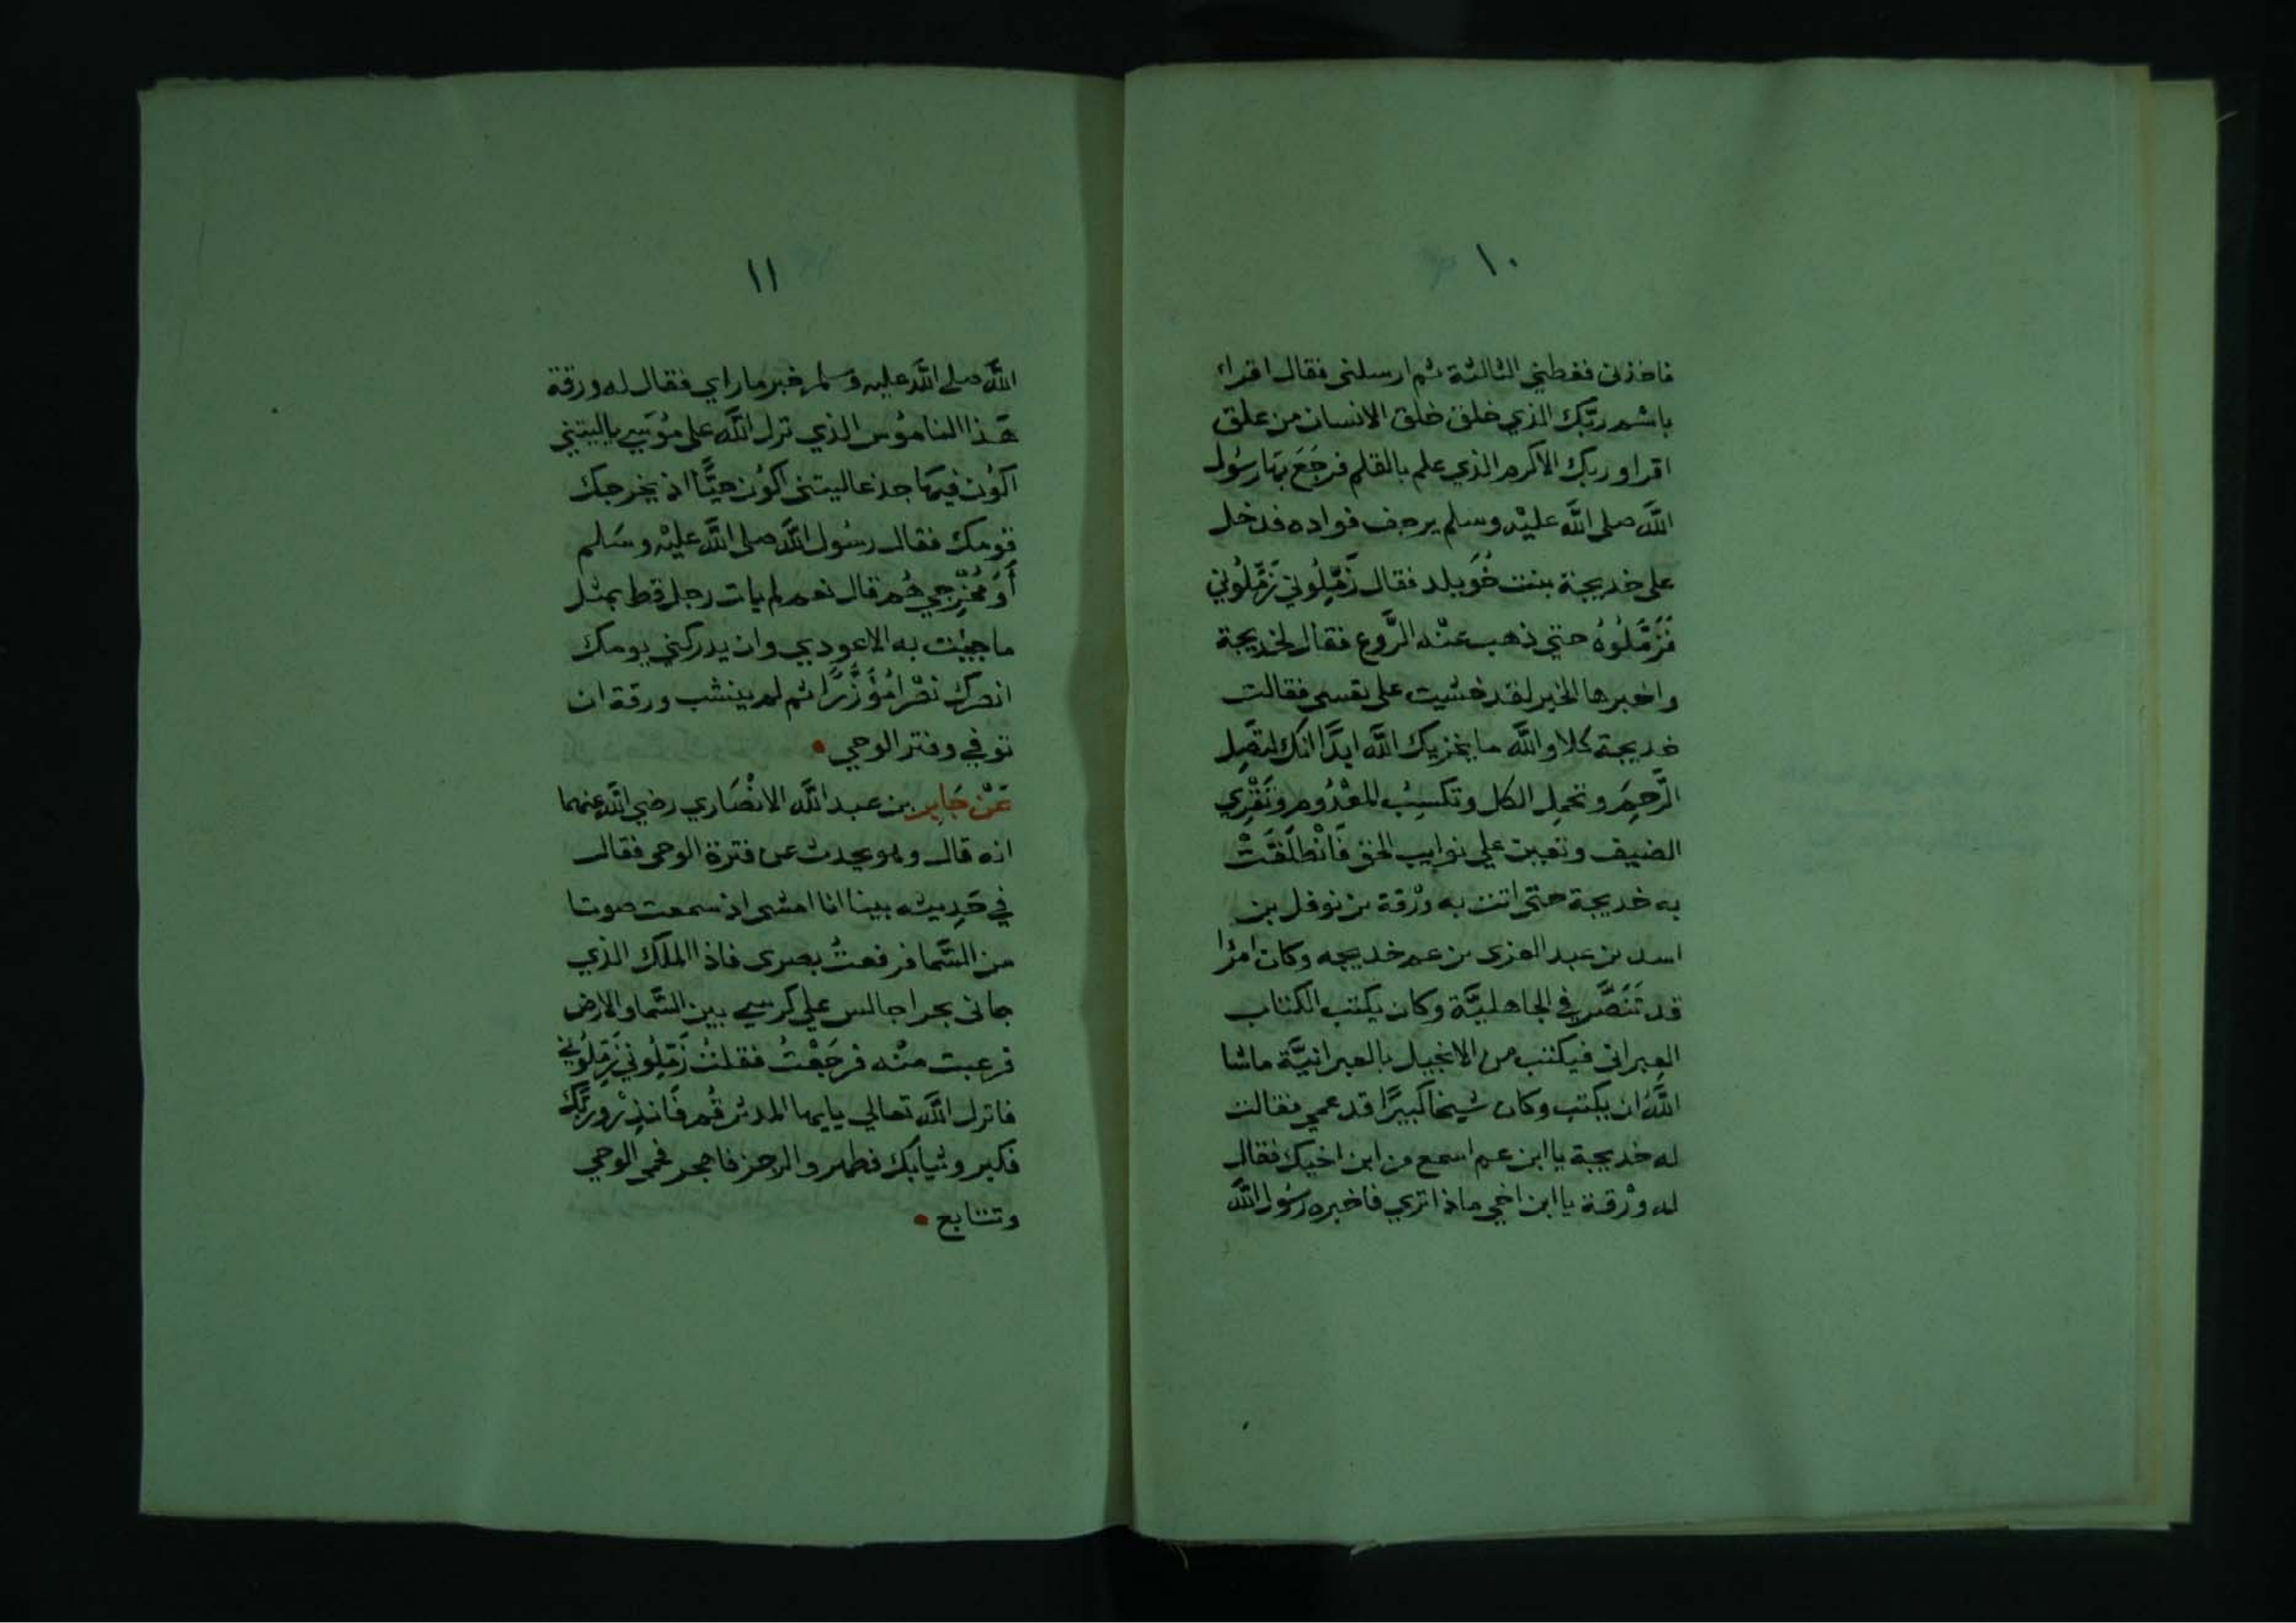 ١٠
فاخذنى فغطني الثالثة ثم ارسلنى فقال اقراء
باسْم ربّك الذي خلق خلق الانسان من علق
اقرا وربك الاكرم الذي علم بالقلم فرجَعَ بهَا رسُول
اللَّه صلى اللَّه عليْه وسلم يرجف فواده فدخل
على خديجة بنت خُوَيلد فقال زَمِّلُوني زَمِّلُوني
فَزَمَّلُوهُ حتي ذهب عنْه الرَّوع فقال لخديجة
واخبرها الخبر لقد خشيت على نفسى فقالت
خديجة كلا واللَّه ما يخزيك اللَّه ابدًا انك لتَصِل
الرَّحِمَ وتحمِل الكل وتكسِبُ المعْدُوم وتَقْرِي
الضيف وتعين علي نوايب الحق فَانْطلَقَتْ
به خديجة حتى اتت به ورْقة بن نوفل بن
اسد بن عبد العزى بن عم خديجه وكان امرًا
قد تَنَصَّر في الجاهليَّة وكان يكتب الكتاب
العِبرانى فيكتب من الانجيل بالعبرانيَّة ماشا
اللَّهُ ان يكتب وكان شيخا كبيرًا قد عمي فقالت
له خديجة يا ابن عم اسمع من ابن اخيك فقال
له ورْقة يا ابن اخي ماذا تري فاخبره رسُول اللَّه
١١
اللَّه صلى اللَّه عليه وسلم خبر ما راي فقال له ورقة
هَذا النامُوس الذي نزل اللَّه على مُوسَي ياليتني
اكُون فيهَا جذعا ليتنى اكُون حيًّا اذ يخرجك
قومك فقال رسُول اللَّه صلى اللَّه عليْه وسَلم
أَوَ مُخْرِجِيَّ هُم قال نعم لم يات رجل قط بمثل
ما جيْت به الا عودي وان يدركني يومك
انصرك نصْرا مُؤَزَّرًا ثم لم ينشب ورقة ان
توفي وفتر الوحي
عَنْ جَابِر بن عبد اللَّه الانْصَاري رضي اللَّه عنهما
انه قال وهو يحدث عن فترة الوحى فقال
في حَدِيثه بينا انا امشى اذ سمعت صوتا
من السَّما فرفعتُ بصرى فاذا الملك الذي
جانى بحرا جالس علي كرسي بين السَّما والارض
فرعبت منْه فرجَعْتُ فقلتُ زَمِّلُوني زَمِّلُوني
فانزل اللَّه تعالي يايها المدثر قُم فَانذِرْ وربَّك
فكبر وثيابك فطهر والرجز فاهجر فحمى الوحي
وتتابع